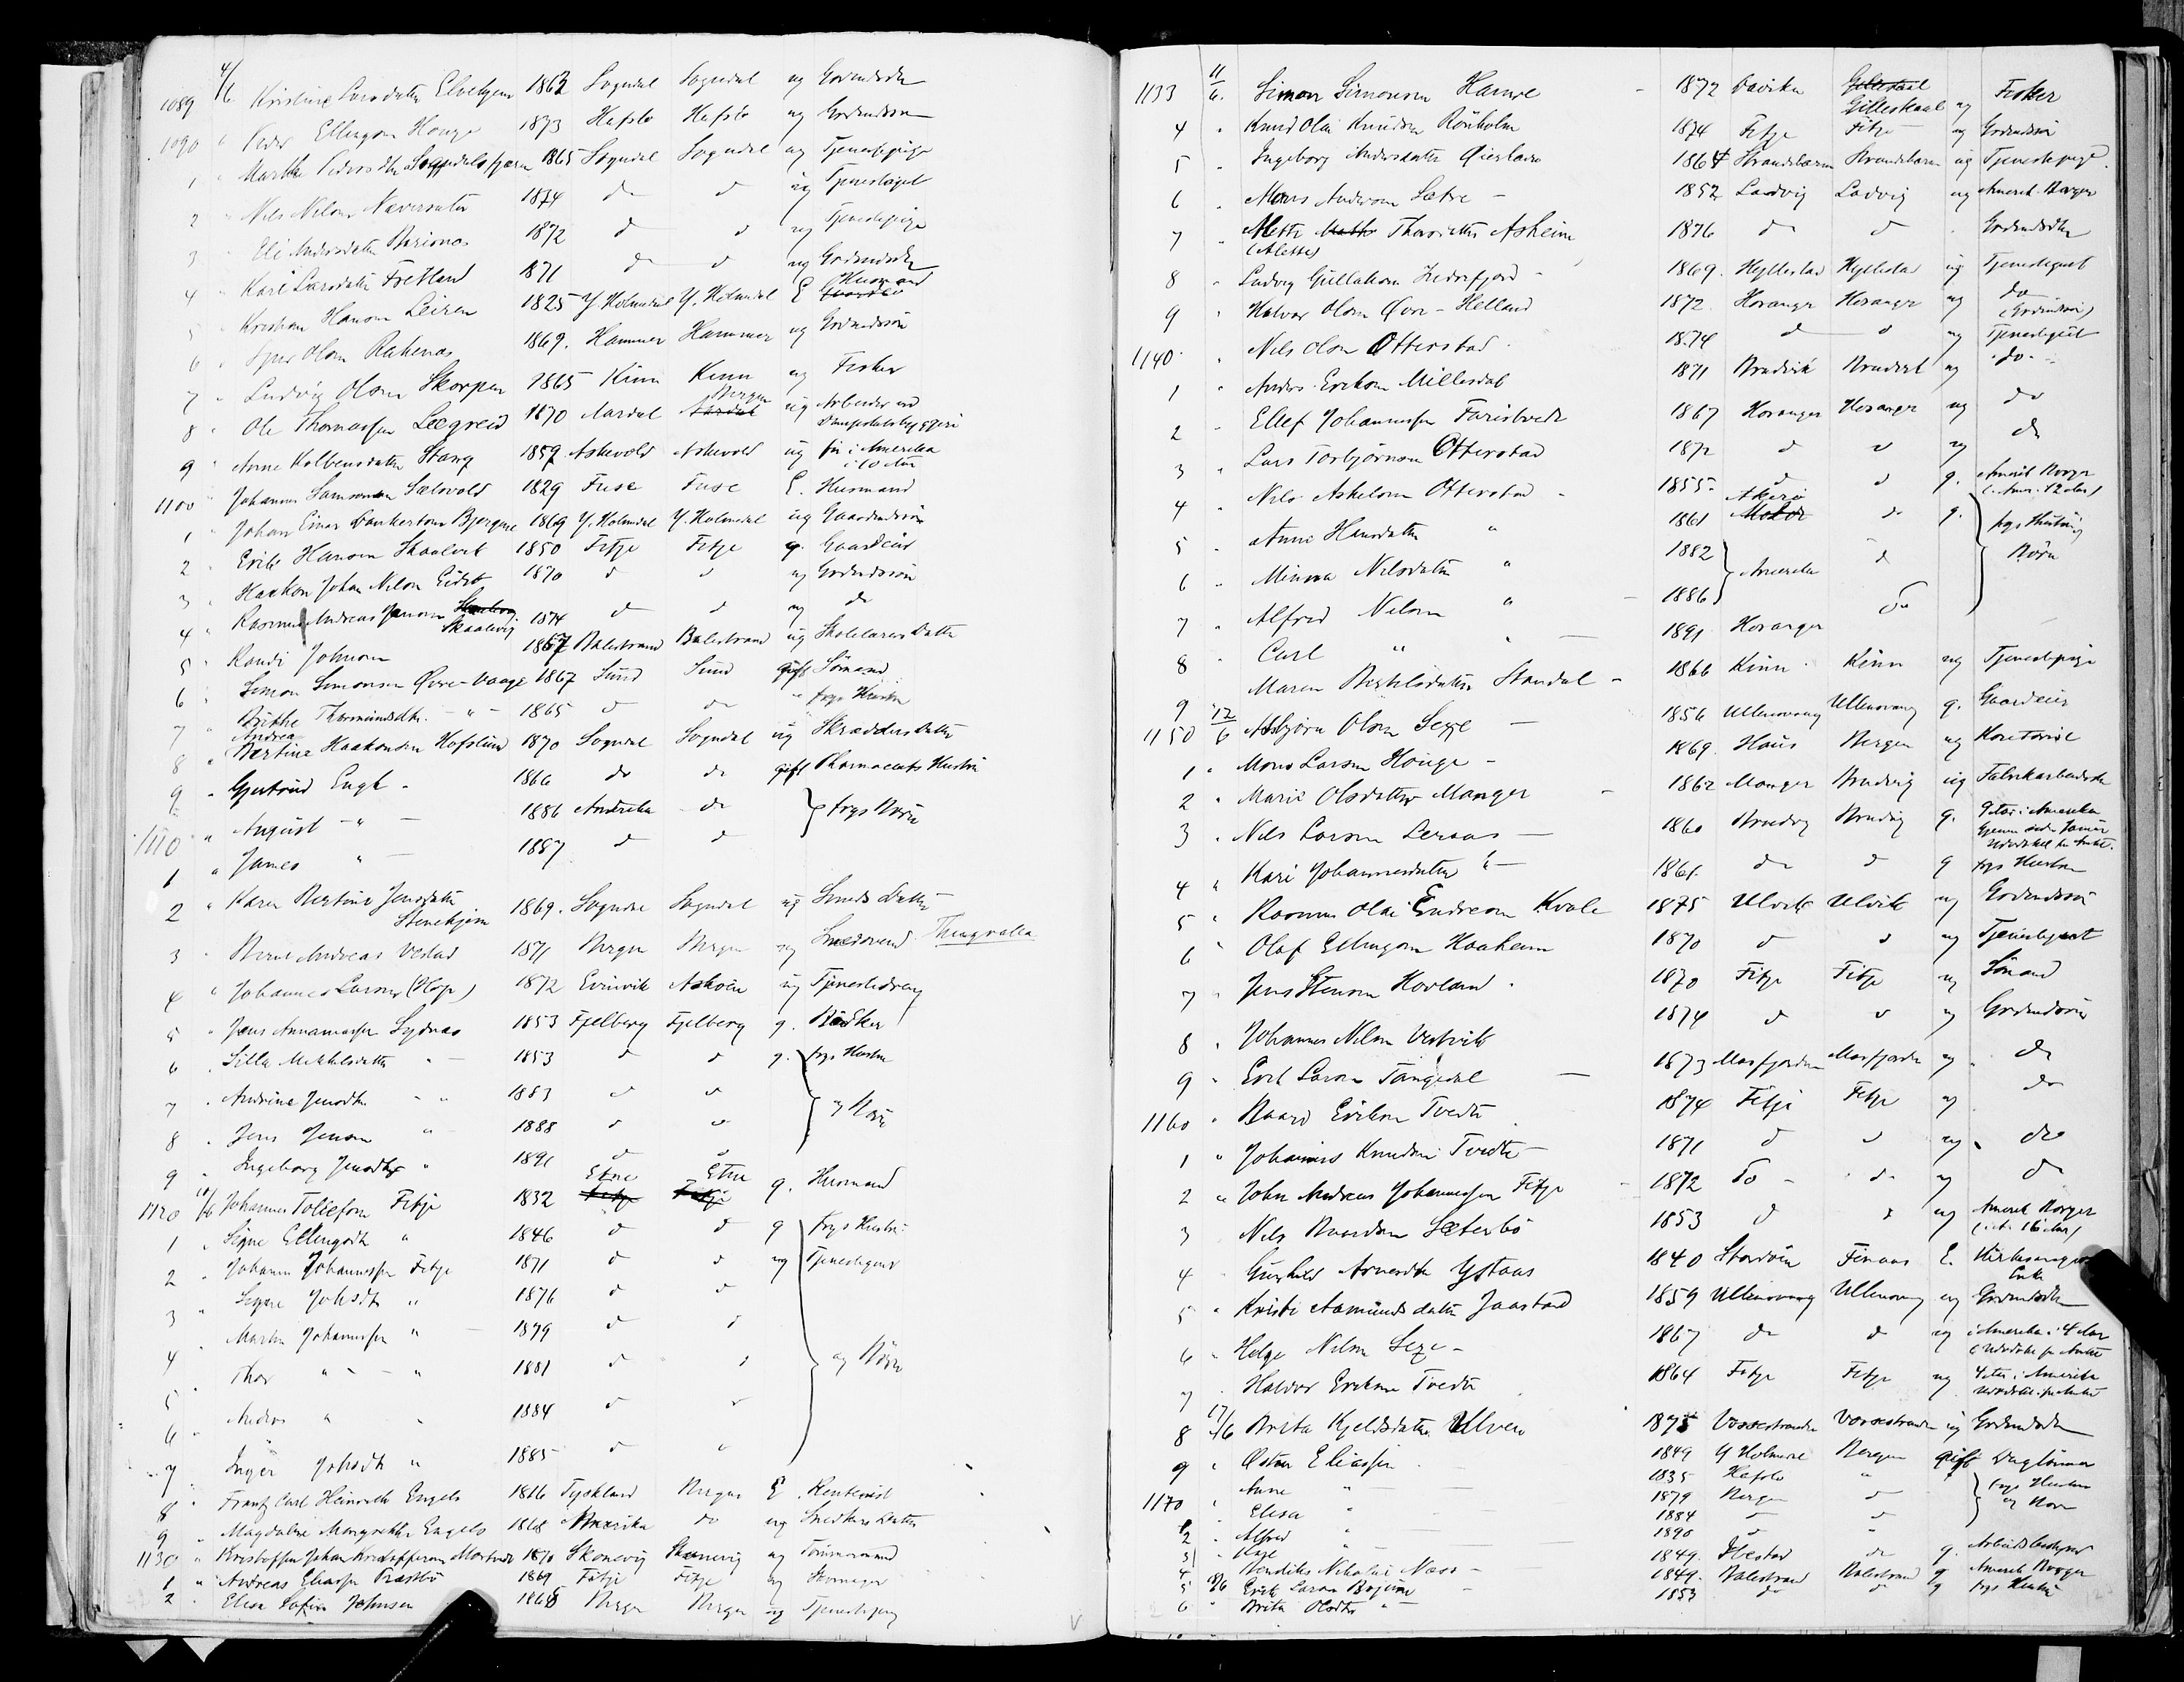 1089 4/6 Kristine Larsdatter Elvehjem 1863 Sogndal Sogndal ug Grdmdsdtr
1090 " Peder Ellingsen Hauge 1873 Hafslo Hafslo ug Grdmdssøn
1 " Marthe Pedersdtr Sogndalsfjæren 1865 Sogndal Sogndal ug Tjenestepige
2 " Nils Nilsen Næverseter 1874 do do ug Tjenestegut
3 " Eli Andersdatter 1872 do do ug Tjenestepige
4 " Kari Larsdatter Fretland 1871 do do ug Grdmdsdtr
5 " Kristian Hansen Leiren 1825 Y. Holmedal Y. Holmedal E Husmand
6 " Olsen Rakenes 1869. Hammer Hammer ug Grdmdssøn
7 " Ludvig Olsen Skorpen 1865 Kinn Kinn ug Fisker
8 " Ole Thomassen Leegreid 1870 Aardal Bergen Aardal ug Arbeider ved
9 " Anne Kolbensdatter Stang 1859 Askevold Askevold ug før i Amerika i 10 Aar
1100 " Johannes Samsonsen Sælevold 1829 Fuse Fuse E. Husmand
1 " Johan Einar Dankertsen Bjergene 1869 Y. Holmedal Y. Holmedal ug Gaardmdssøn
2 " Erik Hansen Skaalevik 1850 Fitje Fitje g. Gaardeier
3 " Haakon Johan Nilsen Eidet 1870 do do ug Grdmdssøn
4 " Rasmus Andreas Jansen Skaalevig 1874 do do ug do
5 " Randi Johnsen 1867 Balestrand Balestrand ug Skolelærers Datter
6 " Simon Simonsen Øvre-Vaage 1867 Sund Sund gift Sømand
7 " Brithe Thormundsdtr. - " - 1865 do do " frgs Hustru
8 " Andrea Bertine Haakonsen Hofslund 1870 Sogndal Sogndal ug Skrædders Datter
9 " Gjertrud Engh - 1866 do do gift Pharmaceuts Hustru
1110 " August - " - 1886 Amerika do frgs Børn
1 " James " - 1887 do do
2 " Karen Bertine Jensdatter Stenehjem 1869. Sogndal Sogndal ug Smeds Datter
3 " Bernt Andreas Vestad 1871 Bergen Bergen ug Smedsvend Thingvalla
4 " Johannes Larsen (Hop) 1872 Evindvik Askøen ug Tjenestedreng
5 " Jens Annanassen Sydnes 1853 Fjelberg Fjelberg g. Bødker
6 " Silla Mikkelsdatter " - 1853 do do g. frgs Hustru
7 " Andrine Jensdtr " " 1883 do do og Børn
8 " Jens Jensen " 1888 do do
9 " Ingeborg Jensdtr " 1891 do do
1120 10/6 Johannes Tollefsen Fitje 1832 Etne Fitje Etne Fitje g. Husmand
1 " Signe Ellingsdtr " 1846 do do g frgs Hustru
2 " Johannes Johannessen Fitje 1871 do do ug Tjenestegut
3 " Signe Johsdtr " 1876 do do
4 " Martin Johannessen " 1879 do do og Børn
5 " Thor " " 1881 do do
6 " Anders " 1884 do do
7 " Inger Johsdtr " 1885 do do
8 " Frantz Carl Heinrich Engels 1816 Tyskland Bergen E. Rentenist
9 " Magdaline Margrethe Engels 1868 Amerika do ug Snedkers Datter
1130 " Kristoffer Johan Kristoffersen 1870 Skonevig Skonevig ug Tømmermand
1 " Andreas Eliassen Træstbø 1869 Fitje Fitje ug Skomager
2 " Elise Sofie Johnsen 1868 Bergen Bergen ug Tjenestepige
1133 11/6. Simon Simonsen Hamre - 1872 Daviken Gilleskaal Gilleskaal ug Fisker
4 " Knud Olai Knudsen Rønholm 1874 Fitje Fitje ug Grdmdssøn
5 " Ingeborg Andersdatter 1864 Strandebarm Strandebarm ug Tjenestepige
6 " Mons Andersen Sætre - 1852 Ladvig Ladvig ug Amerik. Borger
7 " Mette Thorsdatter Asheim (Alette) 1876 do do " Grdmdsdtr
8 " Ludvig Gullaksen 1869. Hyllestad Hyllestad ug Tjenestegut
9 " Halvor Olsen Øvre-Helland 1872. Hosanger Hosanger ug do (Grdmdssøn)
1140 " Nils Olsen Otterstad 1874 do do ug Tjenestegut
1 " Anders Eriksen Millesdal 1871 Brudvik Brudvik ug do.
2 " Ellef Johannessen Faristvedt 1867 Hosanger Hosanger ug do
3 " Lars Torbjørnsen Otterstad 1872 do do ug do
4 " Nils Askelsen Otterstad - 1855 do do g. Amerik Borger (i Amr. 12 Aar)
5 " Anne Hansdatter " 1861 Akerø Molde do g. frgs Hustru
6 " Minna Nilsdatter " 1882 Amerika do Børn
7 " Alfred Nilsen " 1886
8 " Carl " " 1891 Hosanger do
9 " Maren Bertelsdatter Standal - 1866 Kinn Kinn ug Tjenestepige
1150 12/6 Asbjørn Olsen Sexe - 1856 Ullensvang Ullensvang g. Gaardeier
1 " Mons Larsen Hauge - 1869. Haus Bergen ug
2 " Marie Olsdatter Manger - 1862 Manger Brudvig ug Fabrikarbeiderske
3 " Nils Larsen Leraas - 1860 Brudvig Brudvig g. 9 Aar i Amerika
4 " Kari Johannesdatter " - 1861. do do g frgs Hustru
5 " Rasmus Olai Endresen Kvale 1875 Ulvik Ulvik ug Grdmdssøn
6 " Olaf Ellingsen Haaheim 1870 do do ug Tjenestegut
7 " Jens Stensen Hovland 1870 Fitje Fitje ug Sømand
8 " Johannes Nilsen Vestvik 1874 do do ug Grdmdssøn
9 " Erik Larsen Tangedal - 1873 Masfjorden Masfjorden ug do
1160 " Baard Eriksen Tvedte 1874 Fitje Fitje ug do
1 " Johannes Knudsen Tvedte 1871 do do ug do
2 " John Andreas Johannessen Fitje 1872 do - do ug do
3 " Nils Baardsen Sæterbø 1853 do do ug Amerik Borger (i Am. 16 Aar)
4 " Gunhild Arnesdtr Ystaas 1840 Stordøen Finaas E. Kirkesangers Enke
5 " Kristi Aamundsdatter Jaastad 1859 Ullensvang Ullensvang ug Grdmdsdtr
6 " Helge Nilsen Sexe - 1867 do do ug i Amerika i 4 Aar
7 " Haldor Eriksen Tvedte 1864 Fitje Fitje ug 4 Aar i Amerika
8 17/6 Brita Kjeldsdatter Ulven 1875 Vossestranden Vossestranden ug Grdmdsdtr
9 " Østen Eliassen 1849 Y Holmedal Bergen gift Daglønner
1170 " Anne " - 1835 Hafslo " frgs Hustru
" Elisa " 1879 Bergen do og Børn
2 " Alfred " - 1884 do do
3 " " - 1890 do "
4 " Bendiks Nikolai Næss - 1849. do g. Arbeidsbestyrer
5 18/6 Erik Larsen - 1849. Balestrand Balestrand g Amerik Borger
6 " Brita Olsdtr " - 1853 do do g frgs Hustru